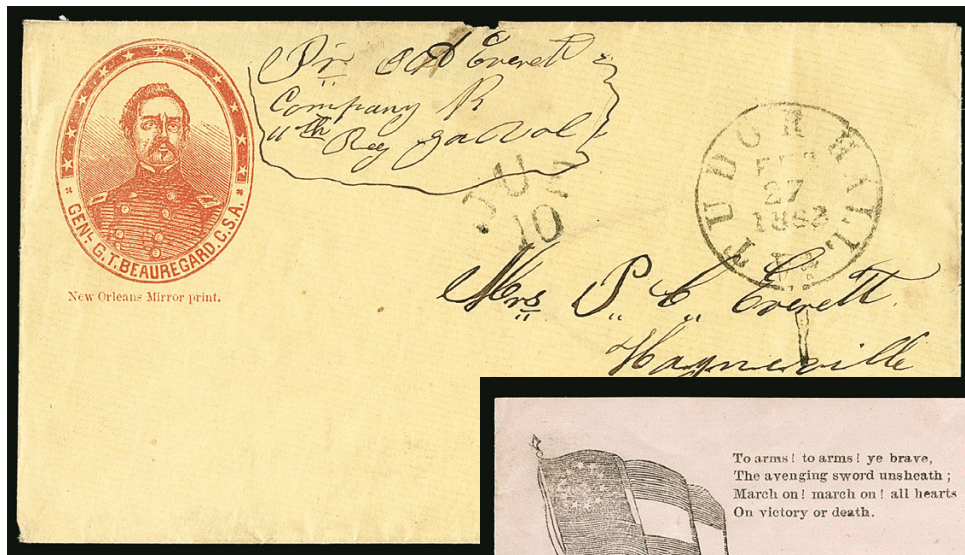 GENL. G.T. BEAUREGARD. C.S.A.
New Orleans Mirror print.
Everett
Company
Reg Ga Vol
DUE
10
TUDOR HALL
FEB
27
1862
Mrs. P. C. Everett
Hayneville
To arms! to arms! ye brave,
The avenging sword unsheath;
March on! march on! all hearts
On victory or death.